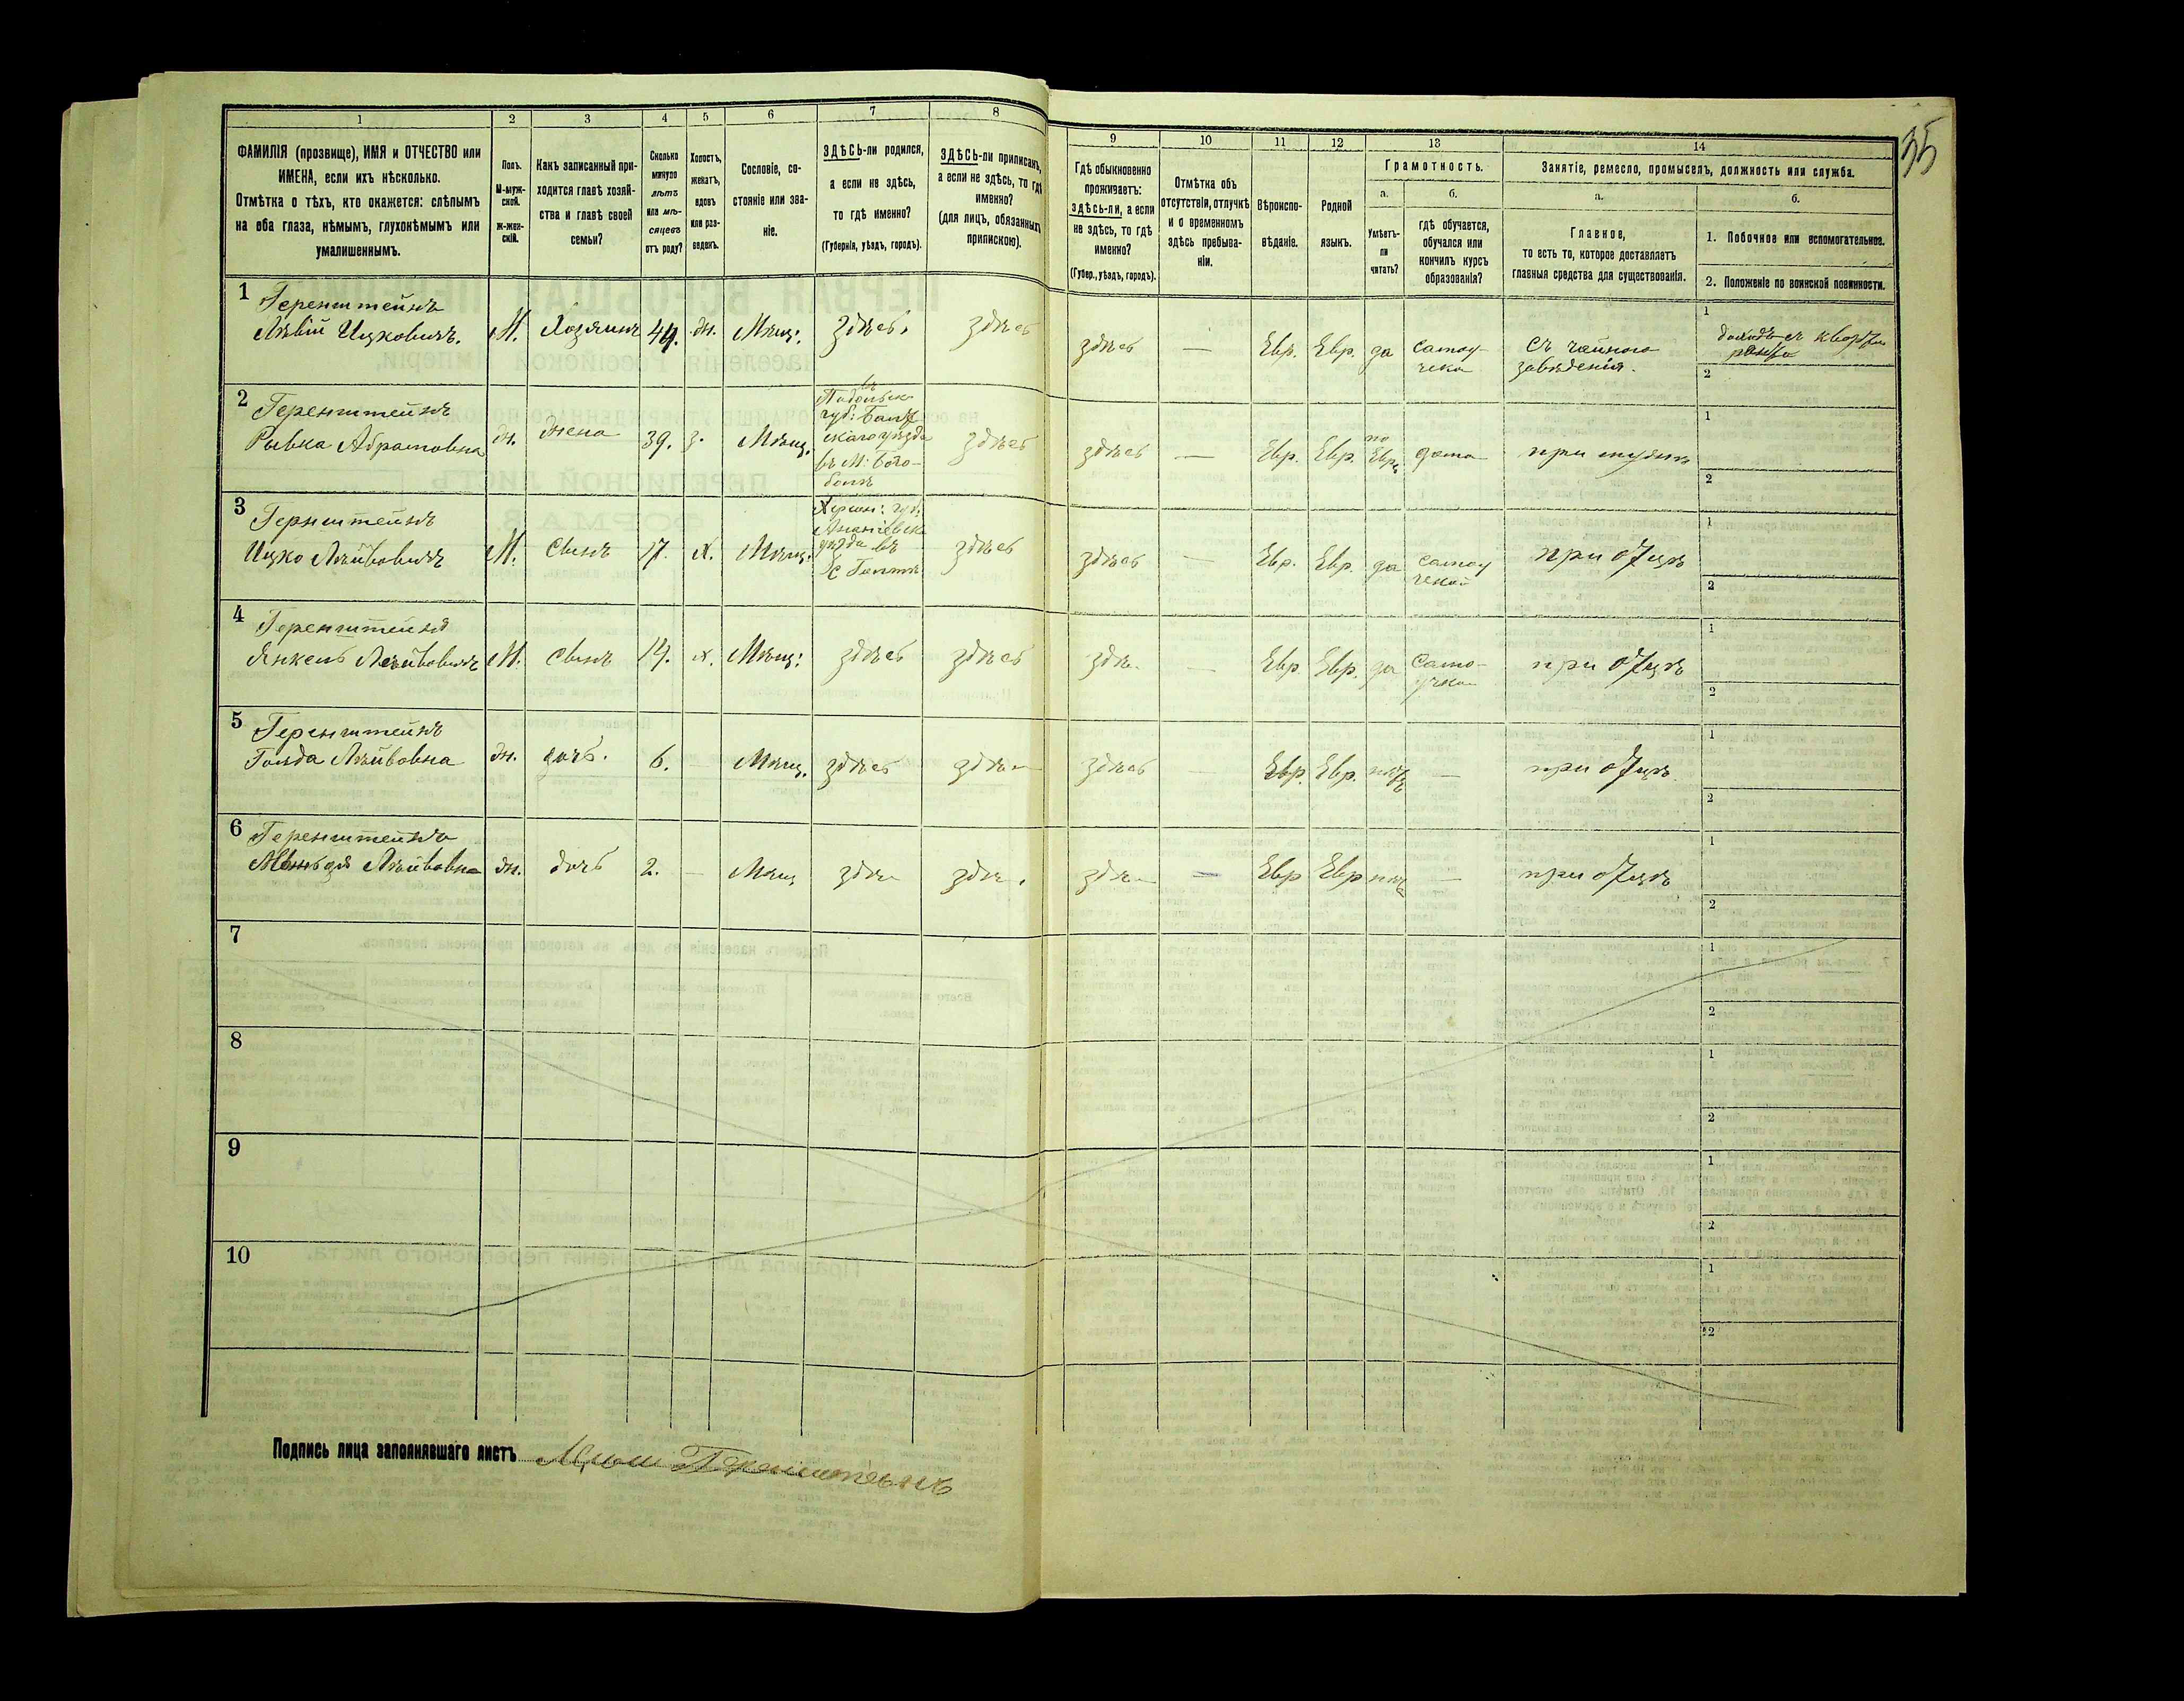 35
1 2 3 4 5 6 7 8 9 10 11 12 13 14
ФАМИЛІЯ (прозвище), ИМЯ и ОТЧЕСТВО или
ИМЕНА, если ихъ нѣсколько.
Отмѣтка о тѣхъ, кто окажется: слѣпымъ
на оба глаза, нѣмымъ, глухонѣмымъ или
умалишеннымъ.
Полъ.
М-муж-
ской.
ж-жен-
скій.
Какъ записанный при-
ходится главѣ хозяй-
ства и главѣ своей
семьи?
Сколько
минуло
лѣтъ
или мѣ-
сяцевъ
отъ роду?
Холостъ,
женатъ,
вдовъ
или раз-
веденъ.
Сословіе, со-
стояніе или зва-
ніе.
ЗДѢСЬ-ли родился,
а если не здѣсь,
то гдѣ именно?
(Губернія, уѣздъ, городъ).
ЗДѢСЬ-ли приписанъ,
а если не здѣсь, то гдѣ
именно?
(для лицъ, обязанныхъ
припискою).
Гдѣ обыкновенно
проживаетъ:
здѣсь-ли, а если
не здѣсь, то гдѣ
именно?
(Губер., уѣздъ, городъ).
Отмѣтка объ
отсутствіи, отлучкѣ
и о временномъ
здѣсь пребыва-
ніи.
Вѣроиспо-
вѣданіе.
Родной
языкъ.
Грамотность.
а.
Умѣетъ-
ли
читать?
б.
гдѣ обучается,
обучался или
кончилъ курсъ
образованія?
Занятіе, ремесло, промыселъ, должность или служба.
а.
Главное,
то есть то, которое доставляетъ
главныя средства для существованія.
б.
1. Побочное или вспомогательное.
2. Положеніе по воинской повинности.
1 Геренштейнъ
Лѣвій Ицковичъ. М. Хозяинъ 44. ж. Мѣщ. здѣсь здѣсь здѣсь — Евр. Евр. да самоу-
чека
съ чайного
заведенія.
1
доходъ съ квартир
2
2 Геренштейнъ
Рывка Абрамовна ж. жена 39. з. Мѣщ.
въ
Подольск
губ: Балт
скаго уѣзда
въ М: Бого-
полѣ
здѣсь здѣсь — Евр. Евр. по
Евр. дома при мужѣ
1
2
3 Гернштейнъ
Ицко Лейбовичъ М. сынъ 17. х. Мѣщ.
Херсон: губ.
Ананіевск
уѣзда въ
здѣсь здѣсь — Евр. Евр. да самоу
чекой
при отцѣ
1
2
4 Геренштейнъ
Янкель Лейбовичъ М. сынъ 14. х. Мѣщ: здѣсь здѣсь здѣ — Евр. Евр. да Само-
учка
при отцѣ
1
2
5 Геренштейнъ
Голда Лейбовна ж. дочь. 6. — Мѣщ. здѣсь здѣ здѣсь — Евр. Евр. нѣтъ — при отцѣ
1
2
6 Геренштейнъ
Лейбовна ж. дочь 2. — Мѣщ здѣ здѣ. здѣ — Евр Евр нѣтъ — при отцѣ
1
2
7
1
2
8
1
2
9
1
2
10
1
2
Подпись лица заполнявшаго листъ Геренштейнъ